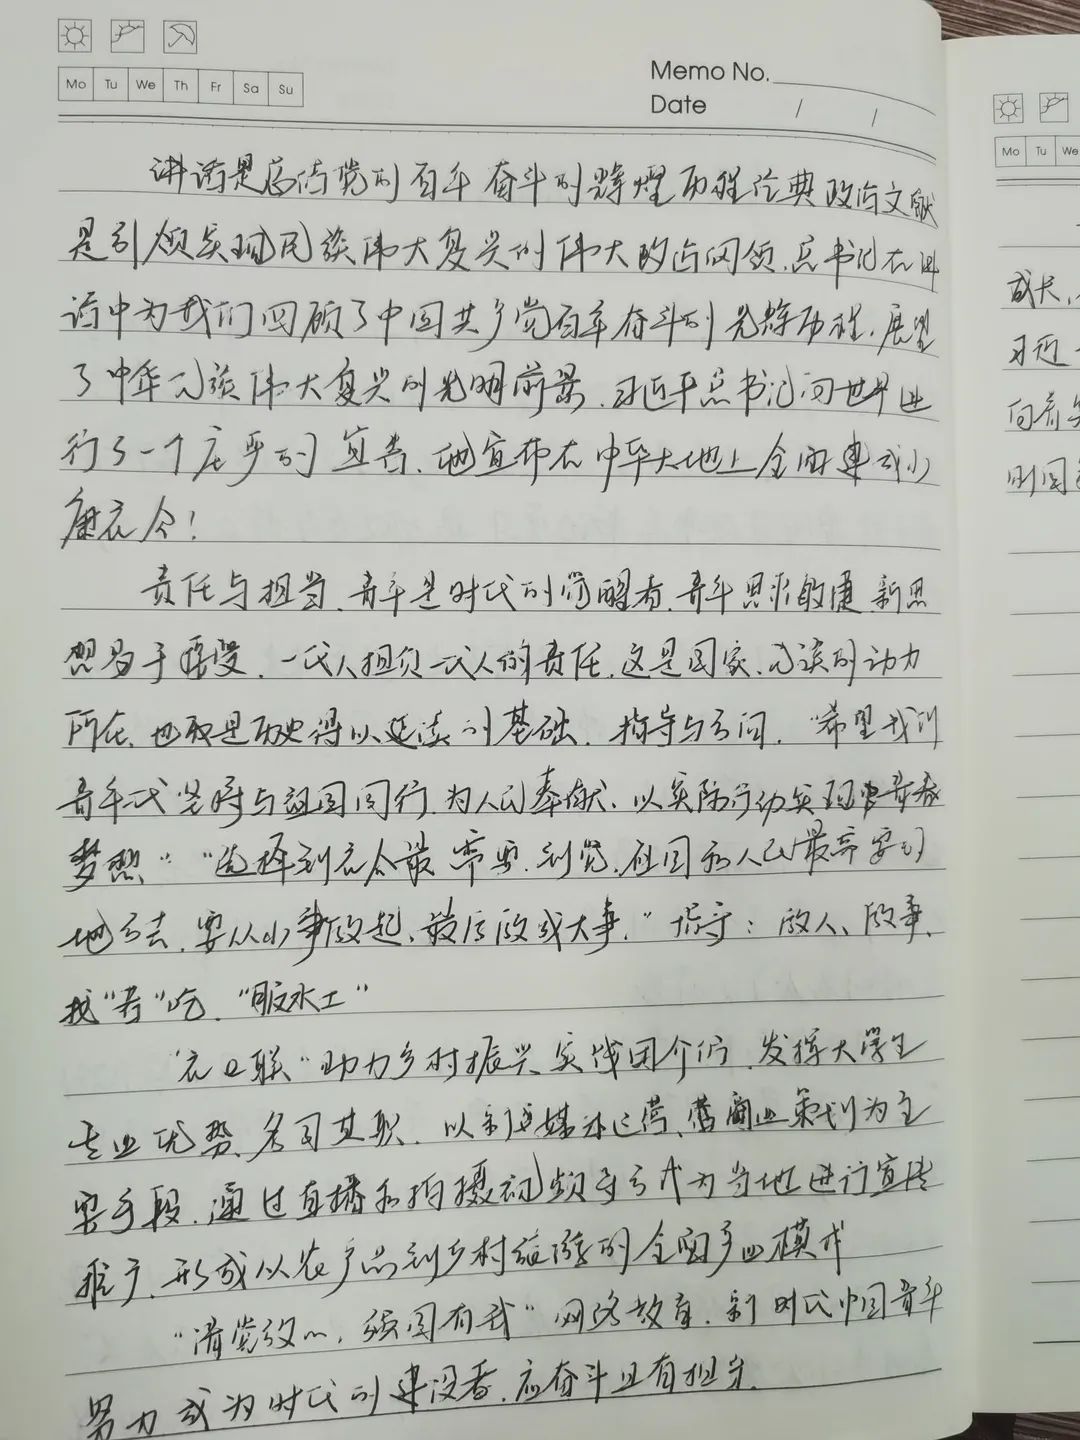 Memo No.
Mo Tu We Th Fr Sa Su
Date / /
Mo Tu We
讲话是总结党的百年奋斗的辉煌历程经典政治文献
是引领实现民族伟大复兴的伟大政治纲领.总书记在讲
话中为我们回顾了中国共产党百年奋斗的光辉历程.展望
了中华民族伟大复兴的光明前景.习近平总书记向世界进
行了一个庄严的宣告.他宣布在中华大地上全面建成小
康社会!
责任与担当.青年是时代的觉醒者.青年思维敏捷.新思
想易于接受.一代人担负一代人的责任.这是国家.民族的动力
所在.也是历史得以延续的基础.指导与方向."希望我们
青年代 时与祖国同行.为人民奉献.以实际行动实现青春
梦想""选择到社会最需要.到党.祖国和人民最需要的
地方去.要从小事做起、最后做成大事."指导:做人、做事、
找"苦"吃."服水土"
"农 联"助力乡村振兴实践团介绍.发挥大学生
专业优势.各司其职.以新媒体运营、营商业策划为主
要手段.通过直播和拍摄视频等方式为当地进行宣传
推广.形成以农产品到乡村旅游的全面产业模式
"请党放心,强国有我"网络教育.新时代中国青年
努力成为时代的建设者.应奋斗且有担当.
成长.
习近
向着